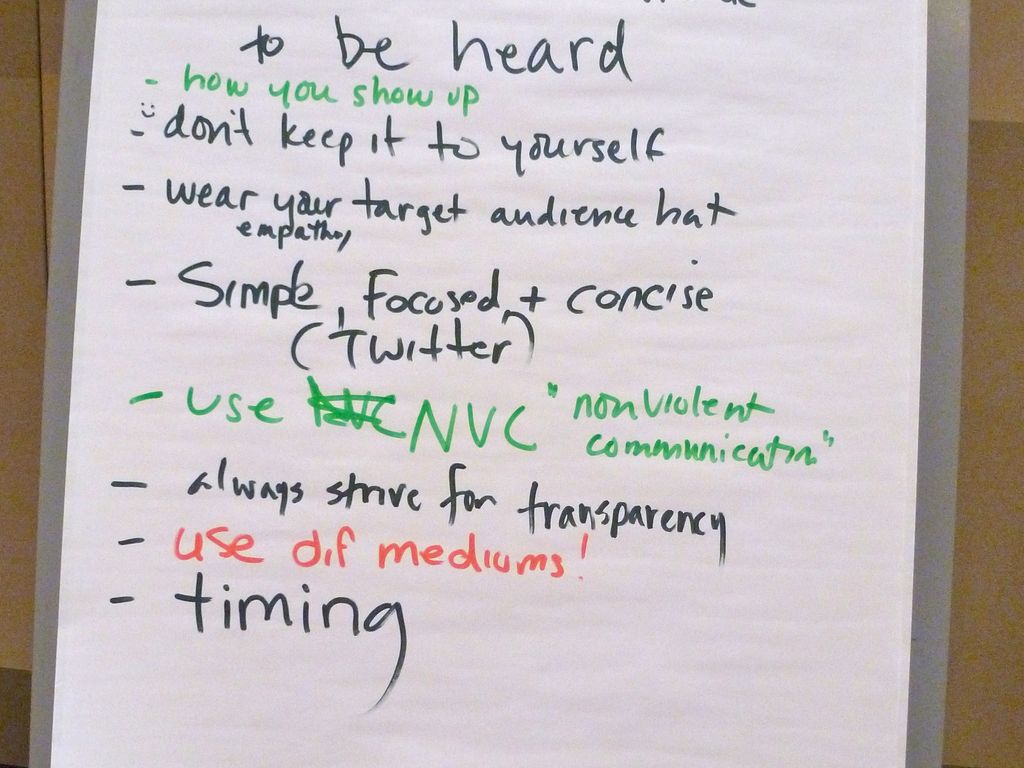 to be heard
- how you show up
- don't keep it to yourself
- wear your target audience hat
empathy
- Simple, Focused, + concise
(Twitter)
- use NVC "nonviolent
communication"
- always strive for transparency
- use dif mediums!
- timing